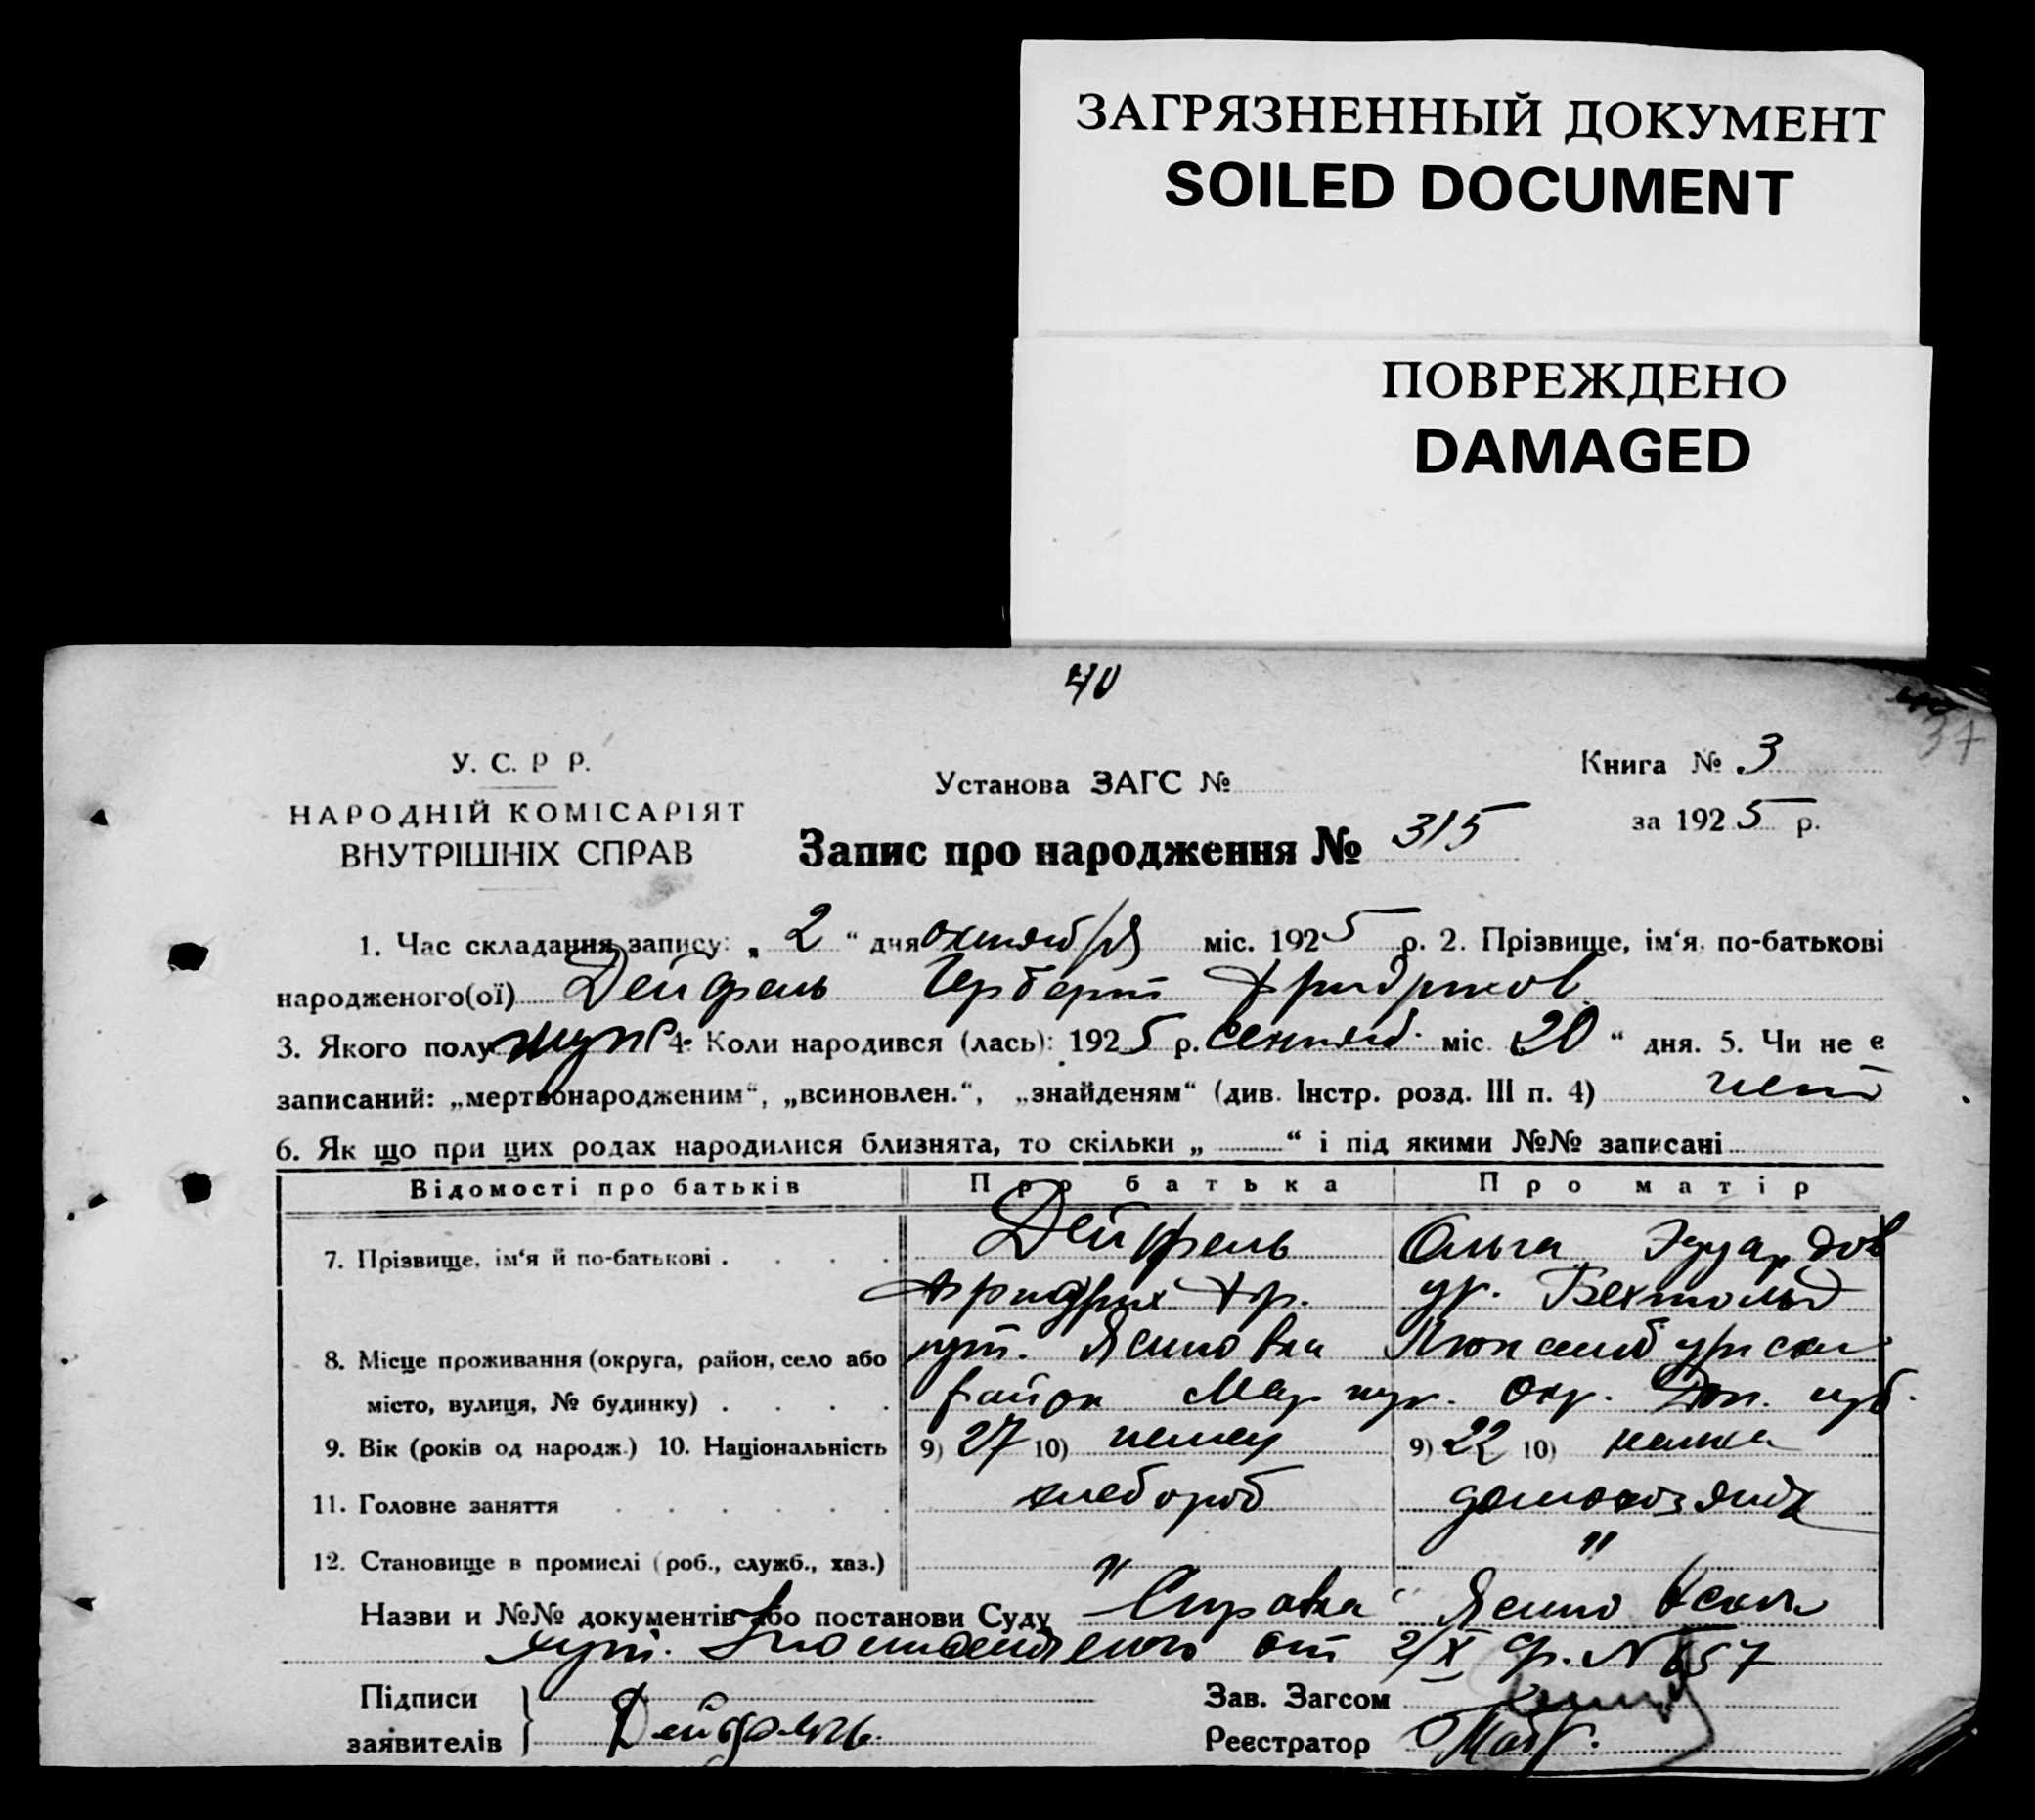 ЗАГРЯЗНЕННЫЙ ДОКУМЕНТ
SOILED DOCUMENT
ПОВРЕЖДЕНО
DAMAGED
40
37
У. С. Р Р.
НАРОДНІЙ КОМІСАРІЯТ
ВНУТРІШНІХ СПРАВ
Установа ЗАГС №
Книга № 3
за 1925 р.
Запис про народження № 315
1. Час складання запису: „ 2 “ дня октября міс. 1925 р. 2. Прізвище, ім‘я, по-батькові
народженого(ої) Дейфель Герберт Фридрихов.
3. Якого полу муж 4. Коли народився (лась): 1925 р. Сентяб. міс. „20 “ дня. 5. Чи не є
записаний: „мертвонародженим“, „всиновлен.“, „знайденям“ (див. Інстр. розд. III п. 4) нет
6. Як що при цих родах народилися близнята, то скільки „ “ і під якими №№ записані
Відомості про батьків Про батька Про матір
7. Прізвище, ім‘я й по-батькові . . . . Дейфель Ольга Эдуардов
Фридрих Фр. ур. Бехтольд
8. Місце проживання (округа, район, село або хут. Ясиновка Люксембургский
місто, вулиця, № будинку) . . . . район Мариуп. окр. Дон. губ.
9. Вік (років од народж.) 10. Національність 9) 27 10) немец 9) 22 10) немка
11. Головне заняття . . . . . . хлебороб домохозяйка
12. Становище в промислі (роб., служб., хаз.) " "
Назви и №№ документів або постанови Суду "Справка" Ясиновский
хут. от 2/X ф. № 657
Підписи
заявителів Дейфель
Зав. Загсом
Реєстратор